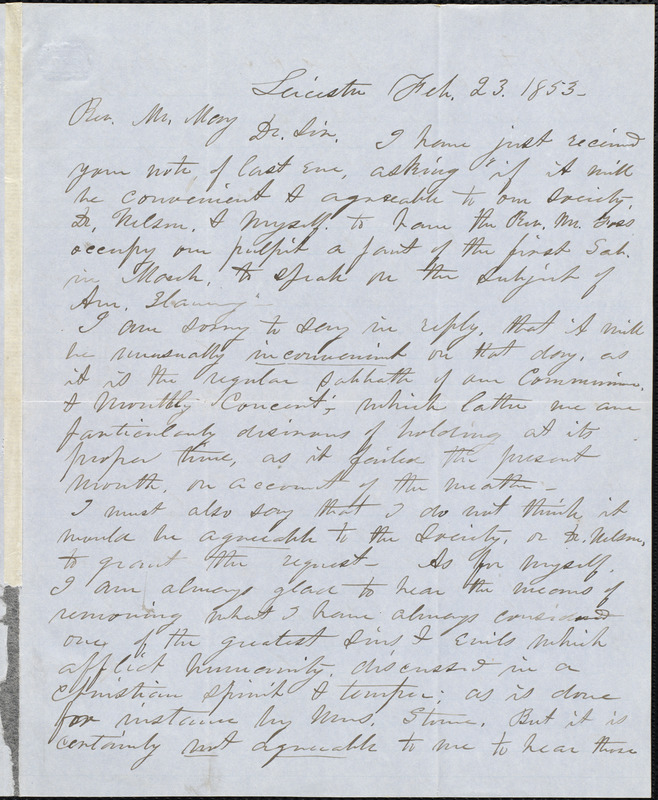 Leicester Feb. 23. 1853-
Rev. Mr. May
Dr. Sir. I have just received
your note, of last Eve, asking "if it will
be convenient & agreeable to our Society,
Dr. Nelson, & myself, to have the Rev. Mr. Foss
occupy our pulpit a part of the first Sab.
in March, to speak on the subject of
Am. Slavery"-
I am sorry to say in reply, that it will
be unusually inconvenient on that day, as
it is the regular Sabbath of our Communion,
& Monthly Concert; which latter we are
particularly desirous of holding at its
proper time, as it failed the present
month, on account of the weather-
I must also say that I do not think it
would be agreeable to the Society, or Dr. Nelson,
to grant the request- As for myself,
I am always glad to hear the means of
removing what I have always considered
one of the greatest Sins & Evils which
afflict humanity, discussed in a
Christian spirit & temper; as is done
for instance by Mrs. Stowe. But it is
certainly not agreeable to me to hear those